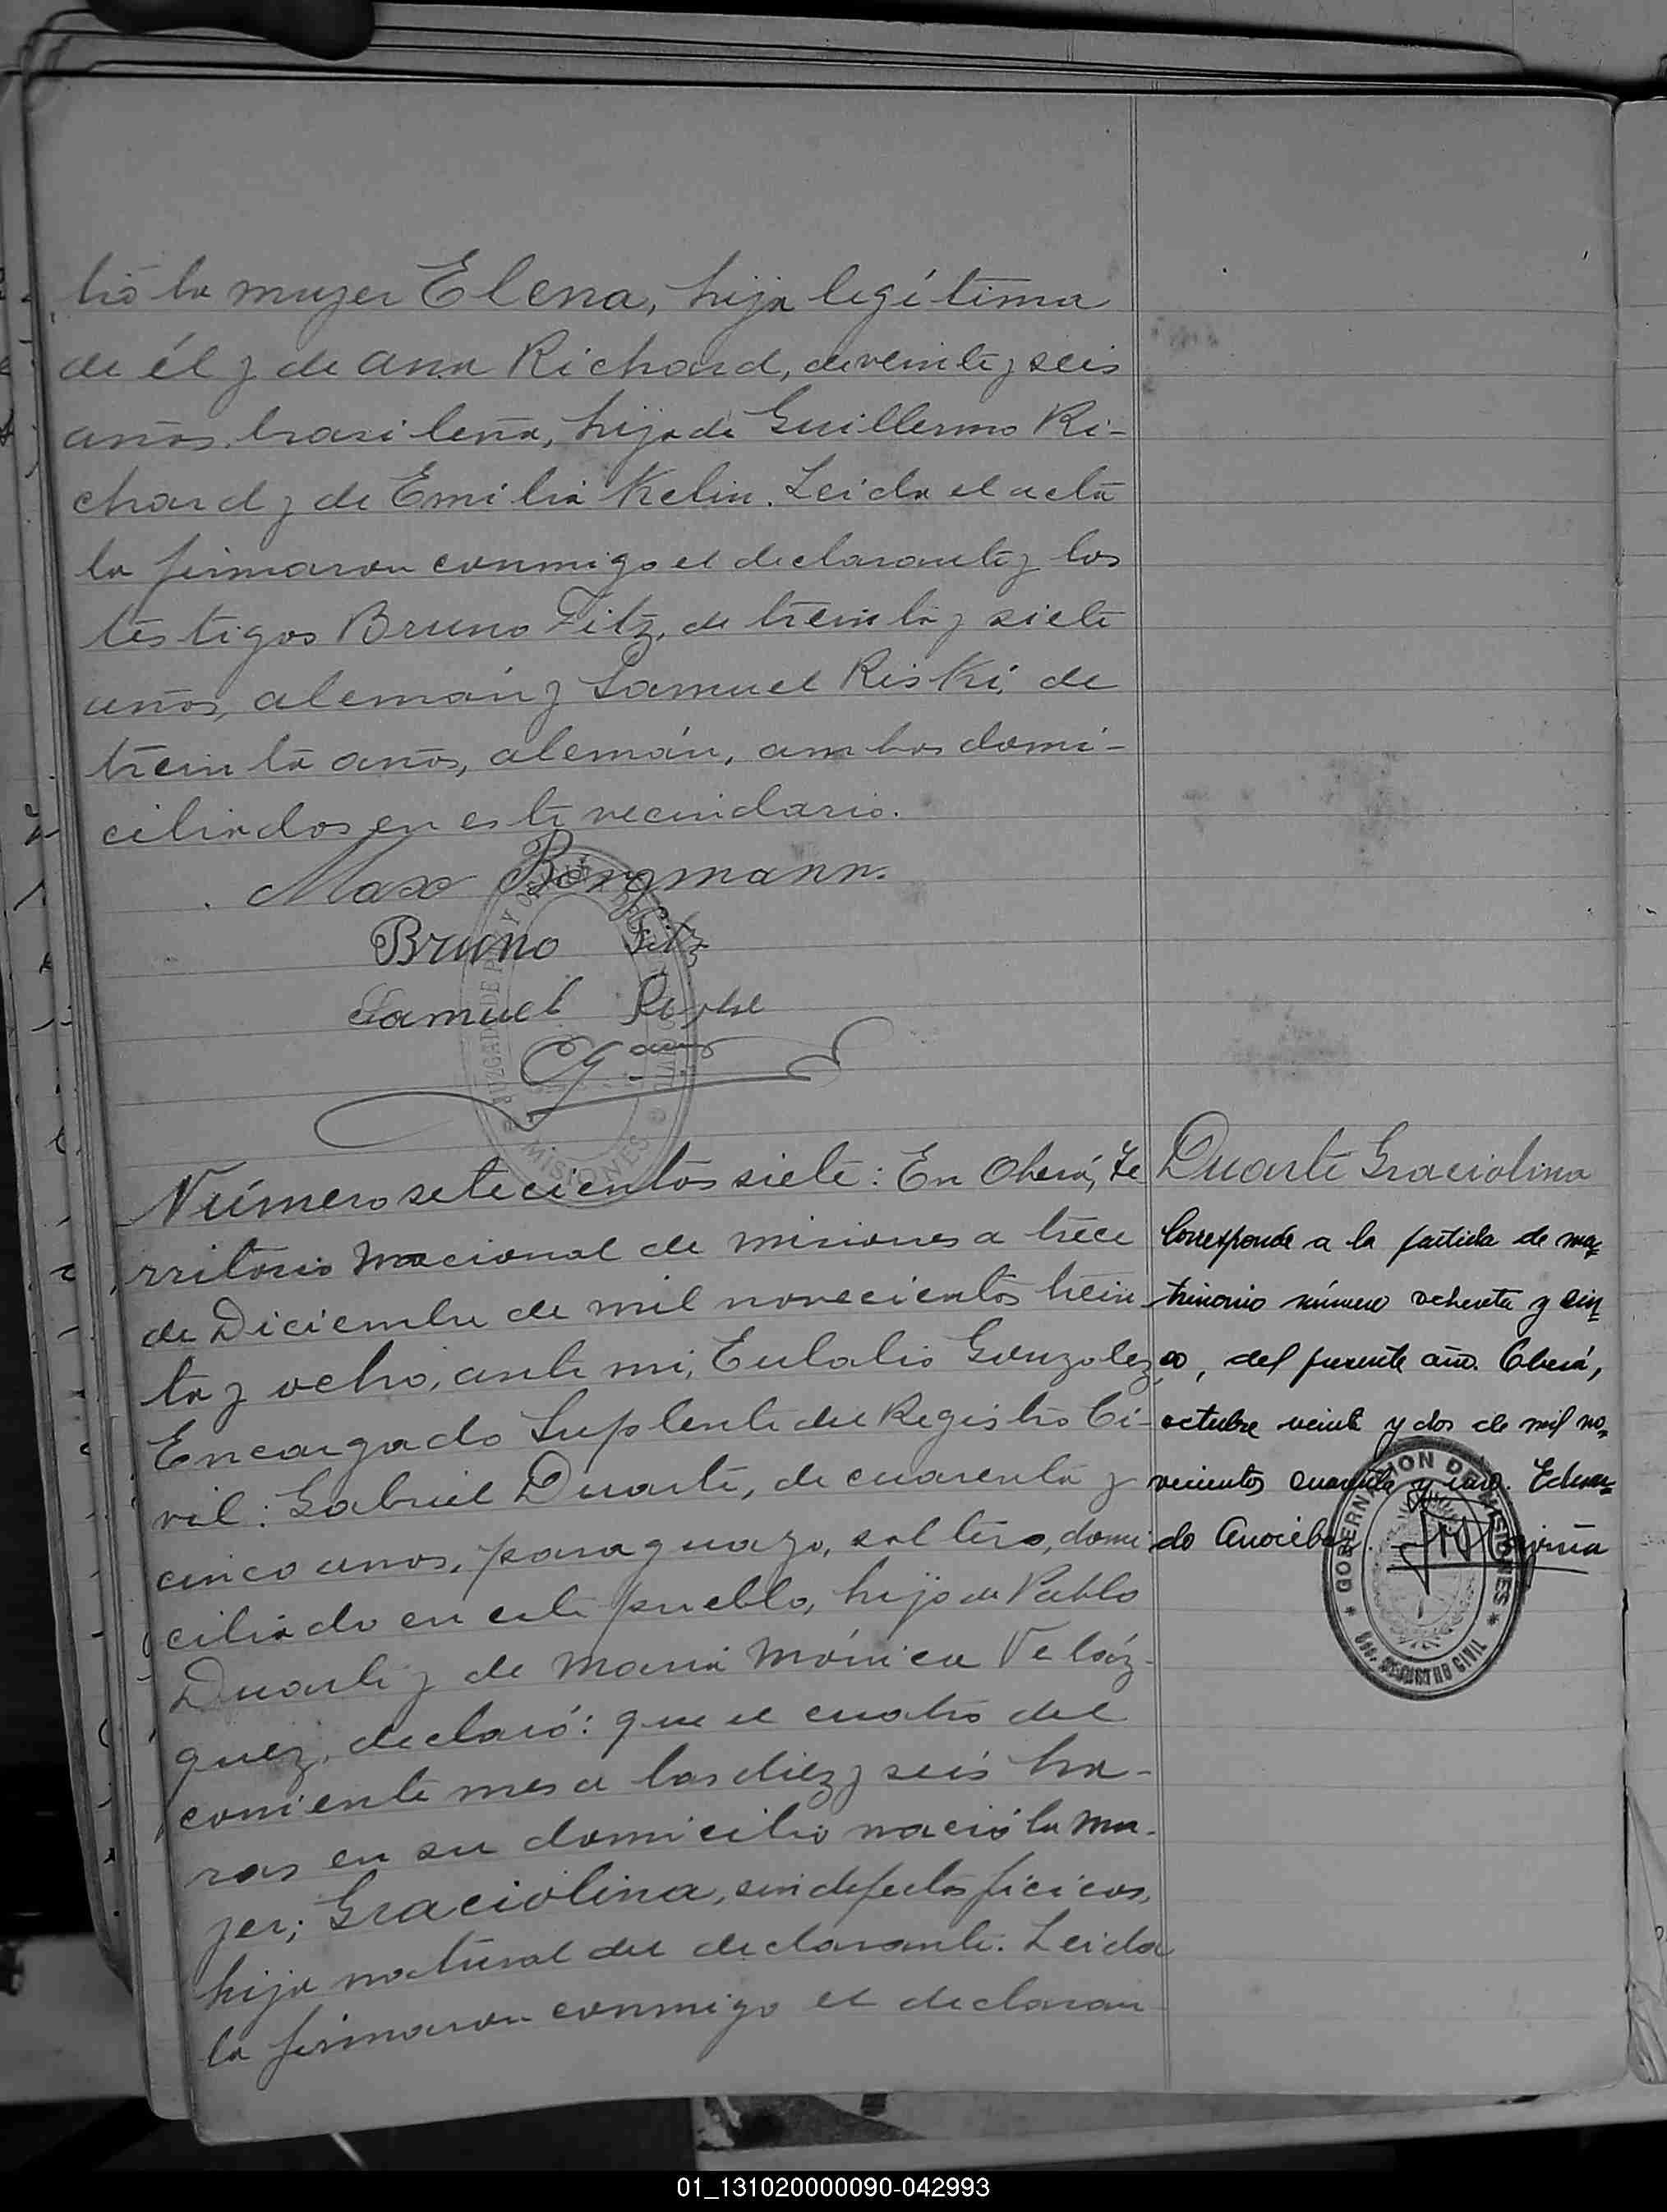 tró la mujer Elena, hija legítima
de él y de Ana Richard, de veinte y seis
años, brasileña, hija de Guillermo Ri-
chard y de Emilia Kelin. Leida el acta
la firmaron conmigo el declarante y los
testigos Bruno Fitz, de treinta y siete
años, alemán y Samuel Riski, de
treinta años, alemán, ambos domi-
ciliados en este vecindario.
Max Bergmann.
Bruno Fitz
Samuel
MISIONES
Número setecientos siete: En Oberá, Te
rritorio Nacional de Misiones a trece
de Diciembre de mil novecientos trein
ta y ocho, ante mi, Eulalio Gonzalez,
Encargado Suplente del Registro Ci-
vil: Gabriel Duarte, de cuarenta y
cinco anos, paraguayo, soltero, domi
ciliado en este pueblo, hijo de Pablo
Duarte y de Maria Mónica Veláz-
quez, declaró: que el cuatro del
corriente mes a las diez y seis ho-
ras en su domicilio nació la mu-
jer; Graciolina, sin defectos ficicos,
hija natural del declarante. Leida
la firmaron conmigo el declaran
Duarte Graciolina
Corresponde a la partida de ma-
trimonio número ochenta y cin-
co, del presente año. Oberá,
octubre veinte y dos de mil no-
vecientos cuarenta y
do
GOBERNACION DE MISIONES
REGISTRO CIVIL
01_131020000090-042993